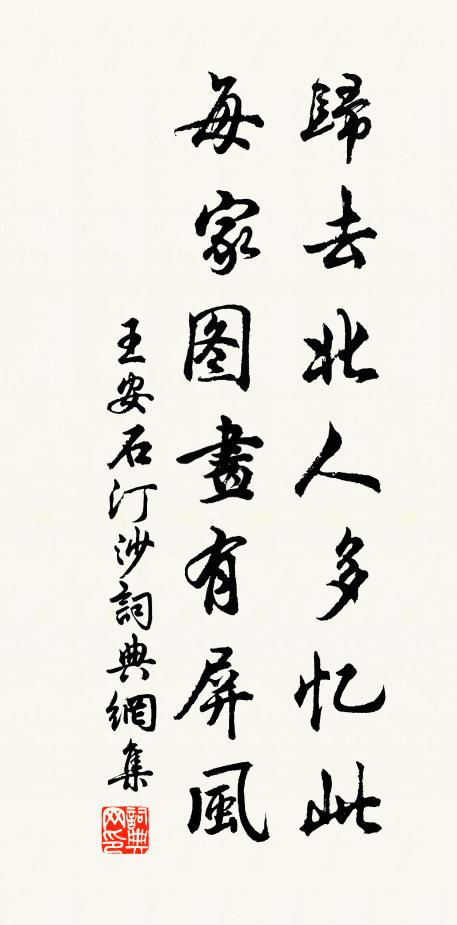 歸去北人多忆此
每家图畫有屏風
王安石汀沙詞典網集
詞典网印